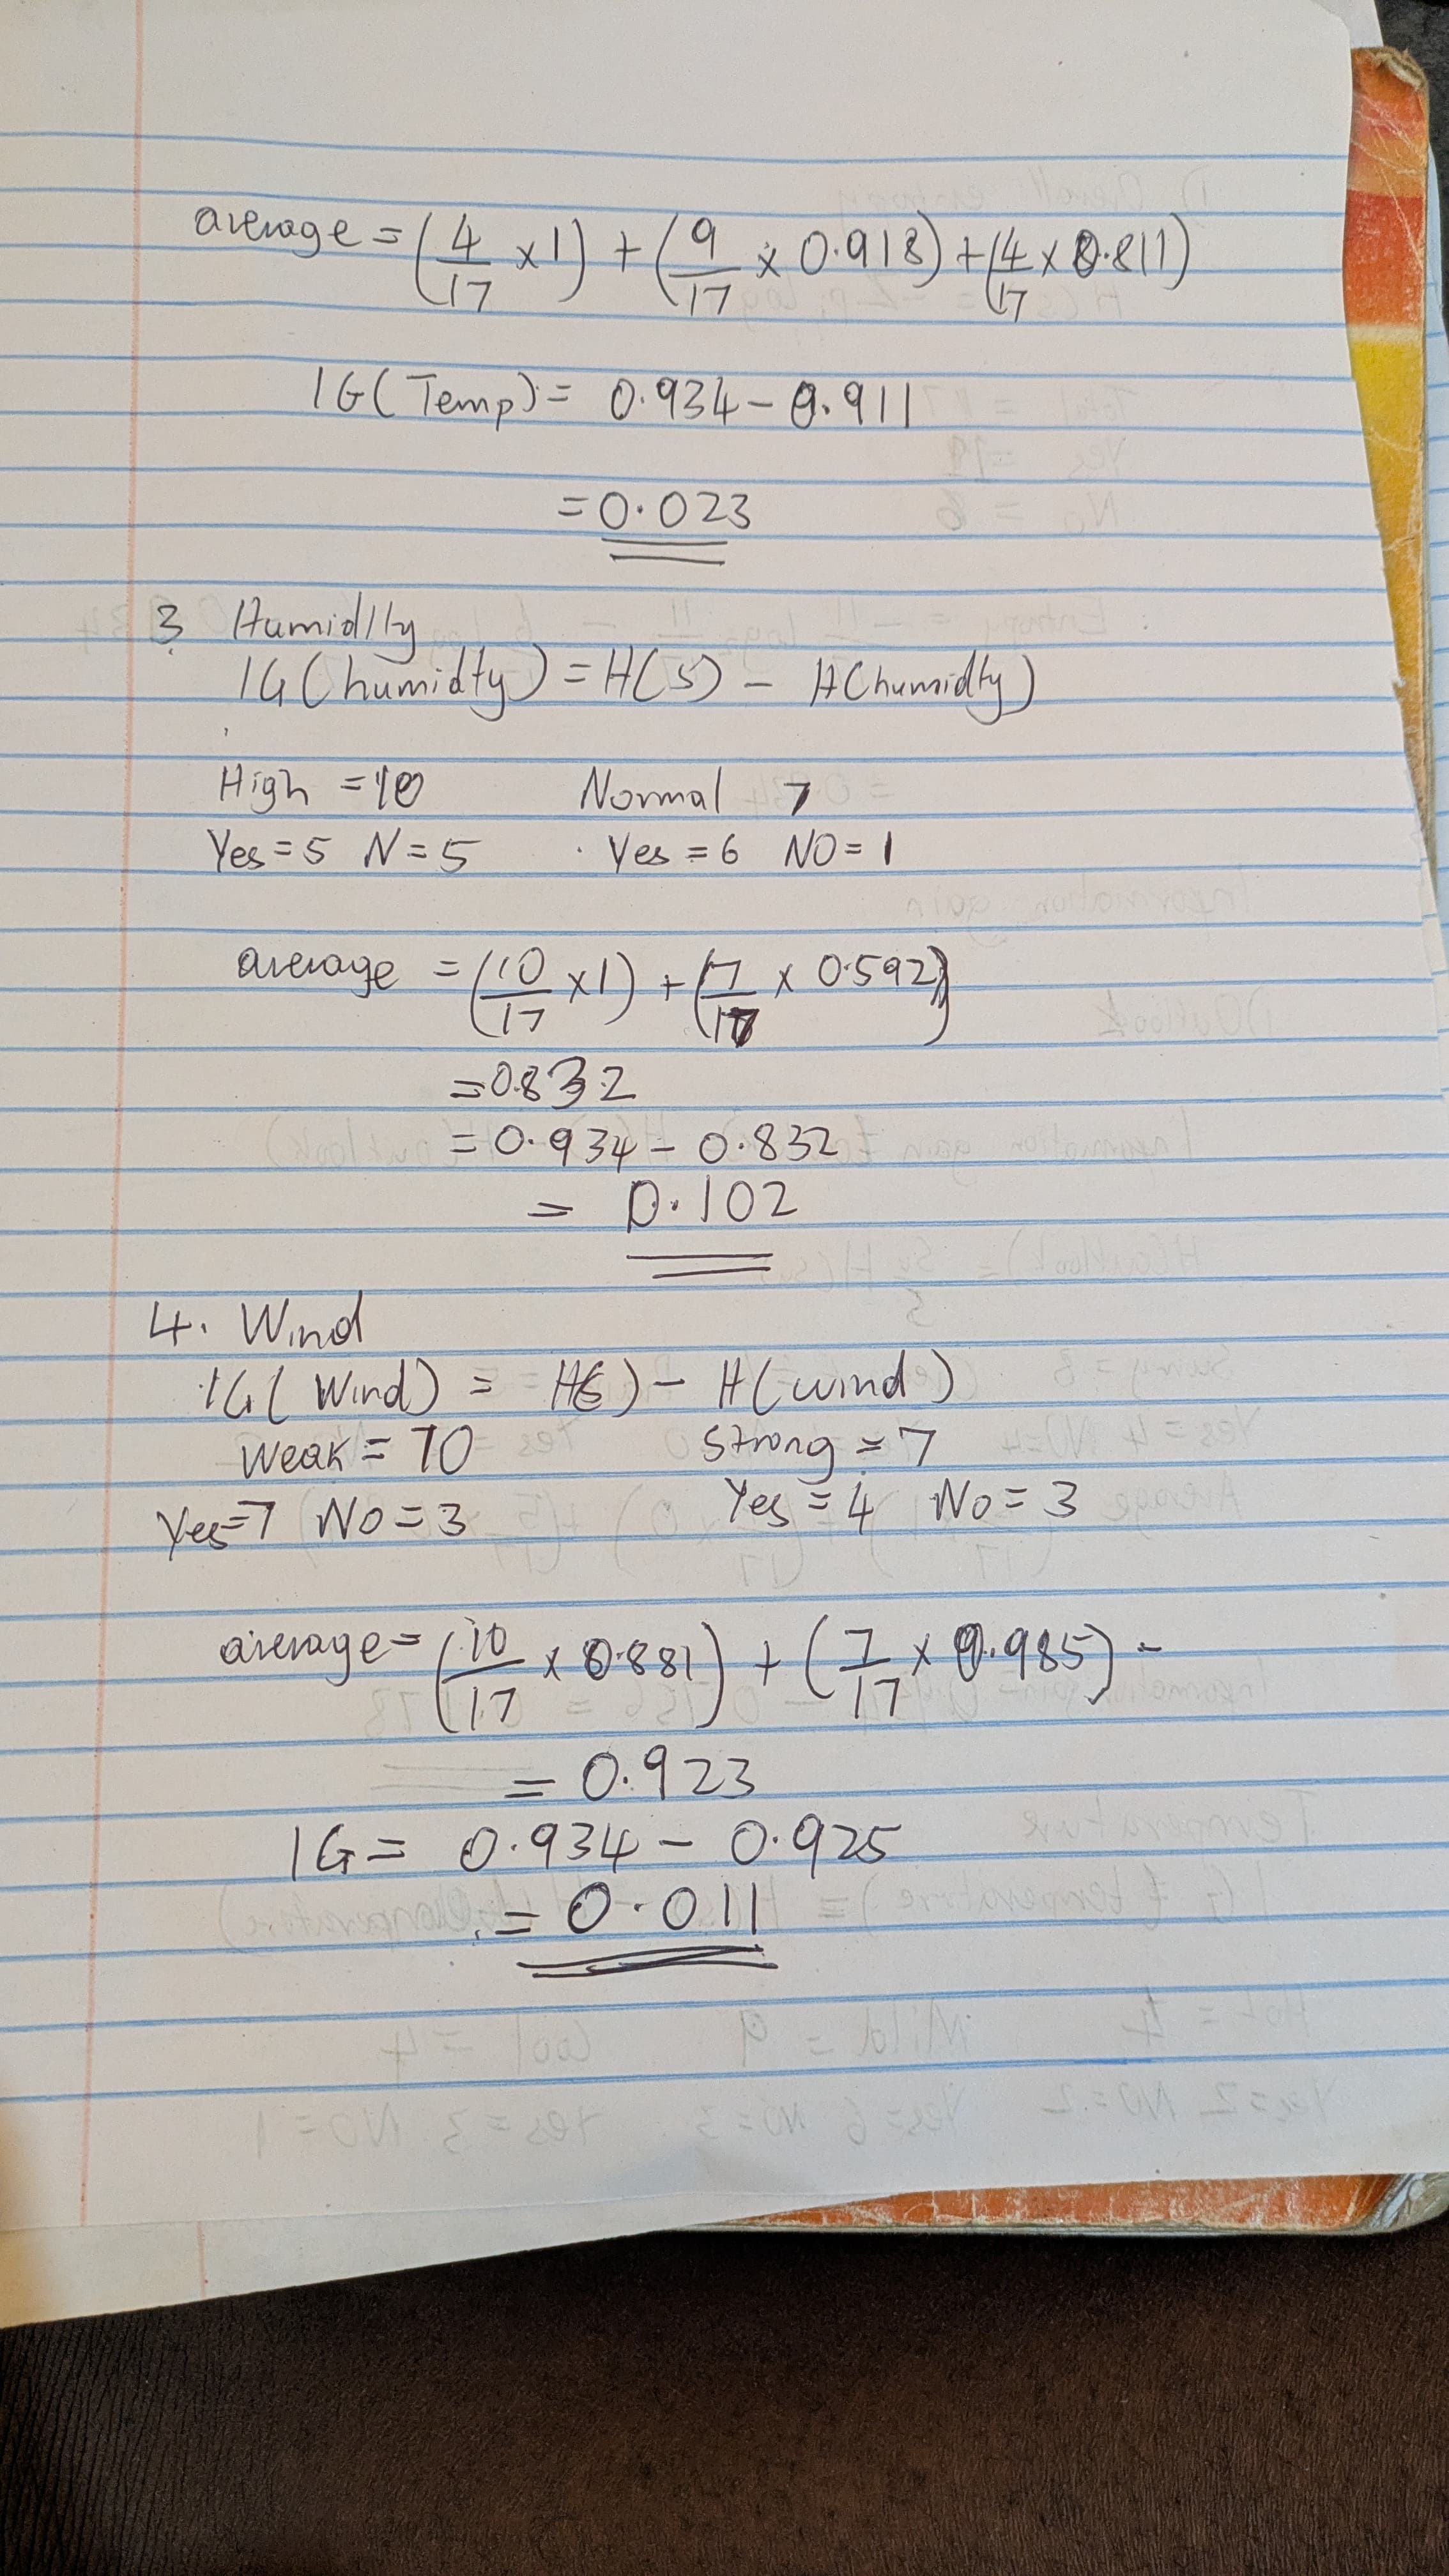 average = (4/17 x 1) + (9/17 x 0.918) + (4/17 x 0.811)
IG(Temp) = 0.934 - 0.911
= 0.023
3. Humidlty
IG(humidty) = H(S) - H(humidty)
High = 10 Normal 7
Yes = 5 N = 5 Yes = 6 NO = 1
average = (10/17 x 1) + (7/17 x 0.592)
= 0.832
= 0.934 - 0.832
= 0.102
4. Wind
IG(Wind) = H(S) - H(wind)
Weak = 10 Strong = 7
Yes = 7 No = 3 Yes = 4 No = 3
average = (10/17 x 0.881) + (7/17 x 0.985) -
= 0.923
IG = 0.934 - 0.925
= 0.011